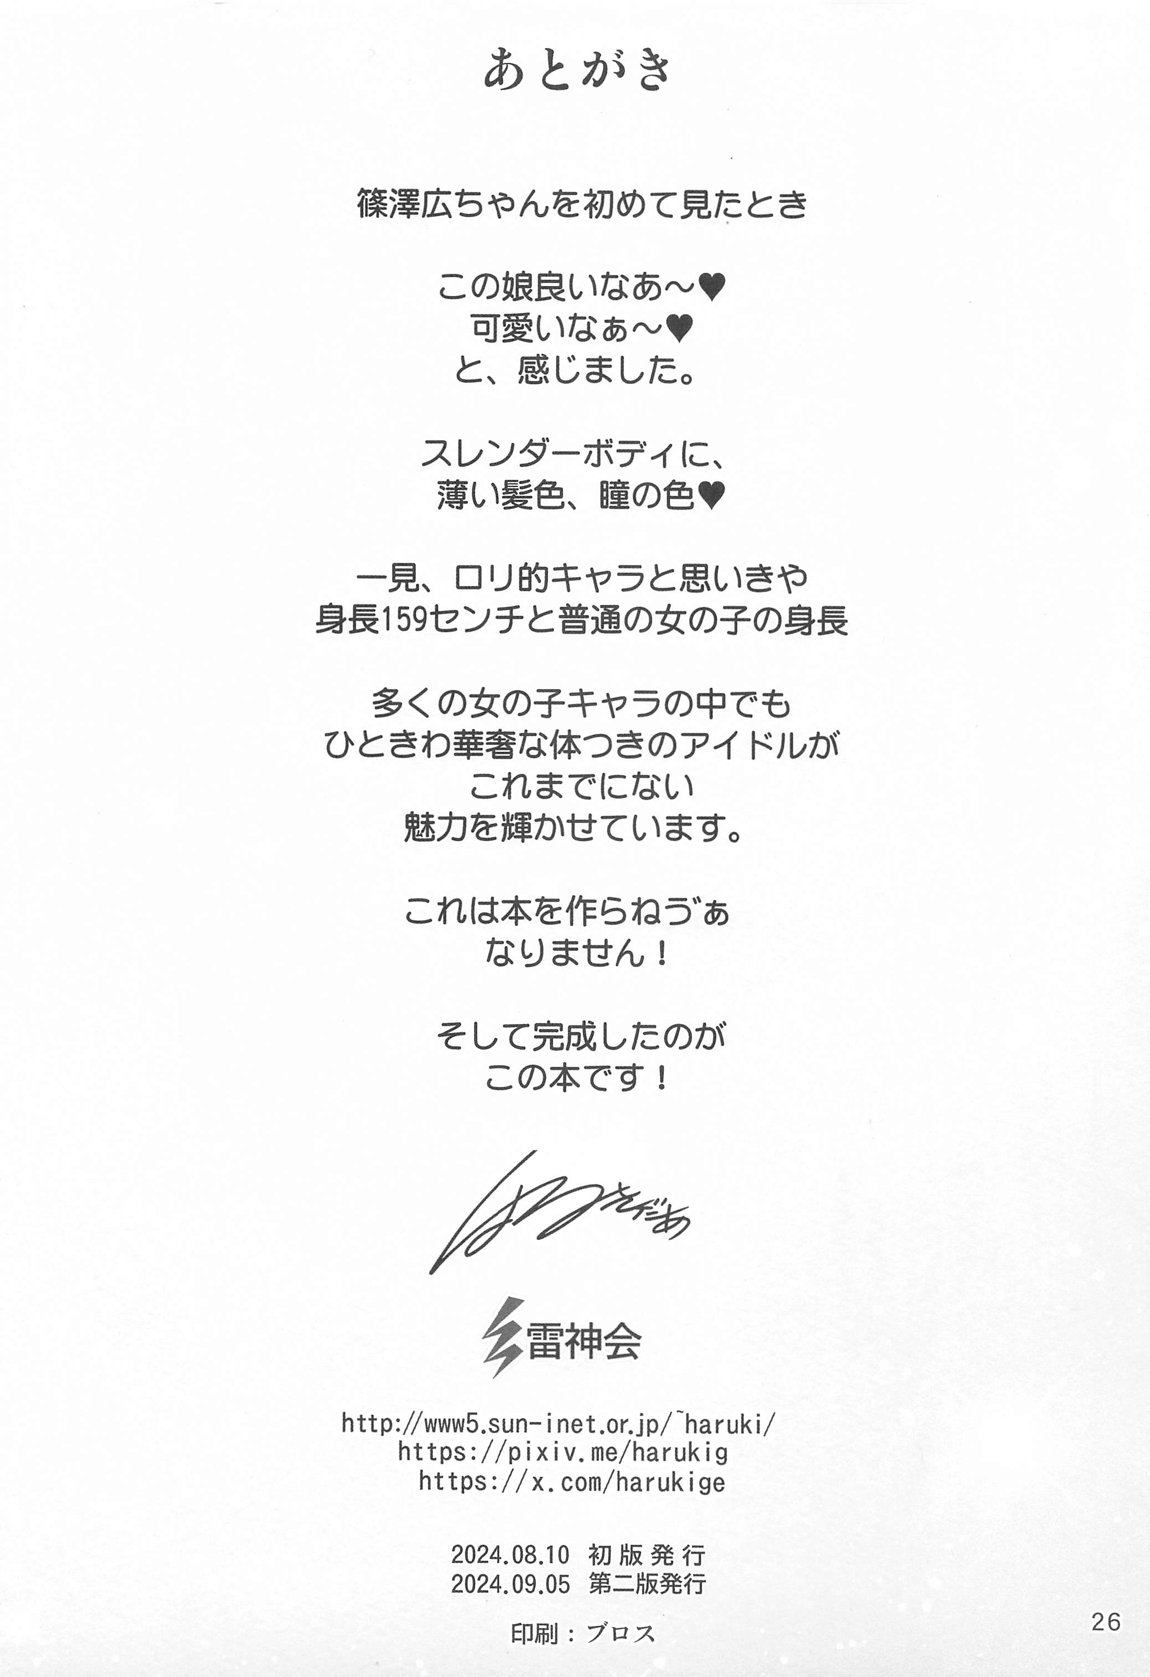 あとがき
篠澤広ちゃんを初めて見たとき
この娘良いなあ～♥
可愛いなぁ～♥
と、感じました。
スレンダーボディに、
薄い髪色、瞳の色♥
一見、ロリ的キャラと思いきや
身長159センチと普通の女の子の身長
多くの女の子キャラの中でも
ひときわ華奢な体つきのアイドルが
これまでにない
魅力を輝かせています。
これは本を作らねゔぁ
なりません！
そして完成したのが
この本です！
はるきゲにあ
雷神会
http://www5.sun-inet.or.jp/~haruki/
https://pixiv.me/harukig
https://x.com/harukige
2024.08.10 初版発行
2024.09.05 第二版発行
印刷：ブロス
26